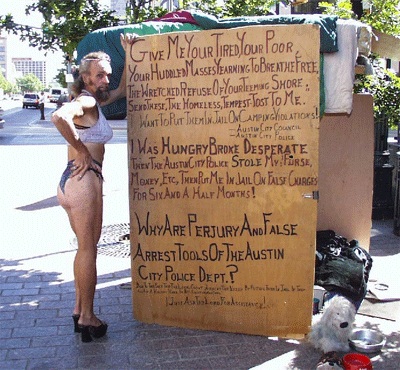 Give Me Your Tired, Your Poor,
Your Huddled Masses Yearning To Breathe Free,
The Wretched Refuse Of Your Teeming Shore;
Send These, The Homeless, Tempest-Tost To Me.
I Want To Put Them In Jail On Camping Violations!
—Austin City Council
—Austin City Police
I Was Hungry Broke Desperate
Then The Austin City Police Stole My Purse,
Money, Etc, Then Put Me In Jail On False Charges
For Six And A Half Months!
Why Are Perjury And False
Arrest Tools Of The Austin
City Police Dept.?